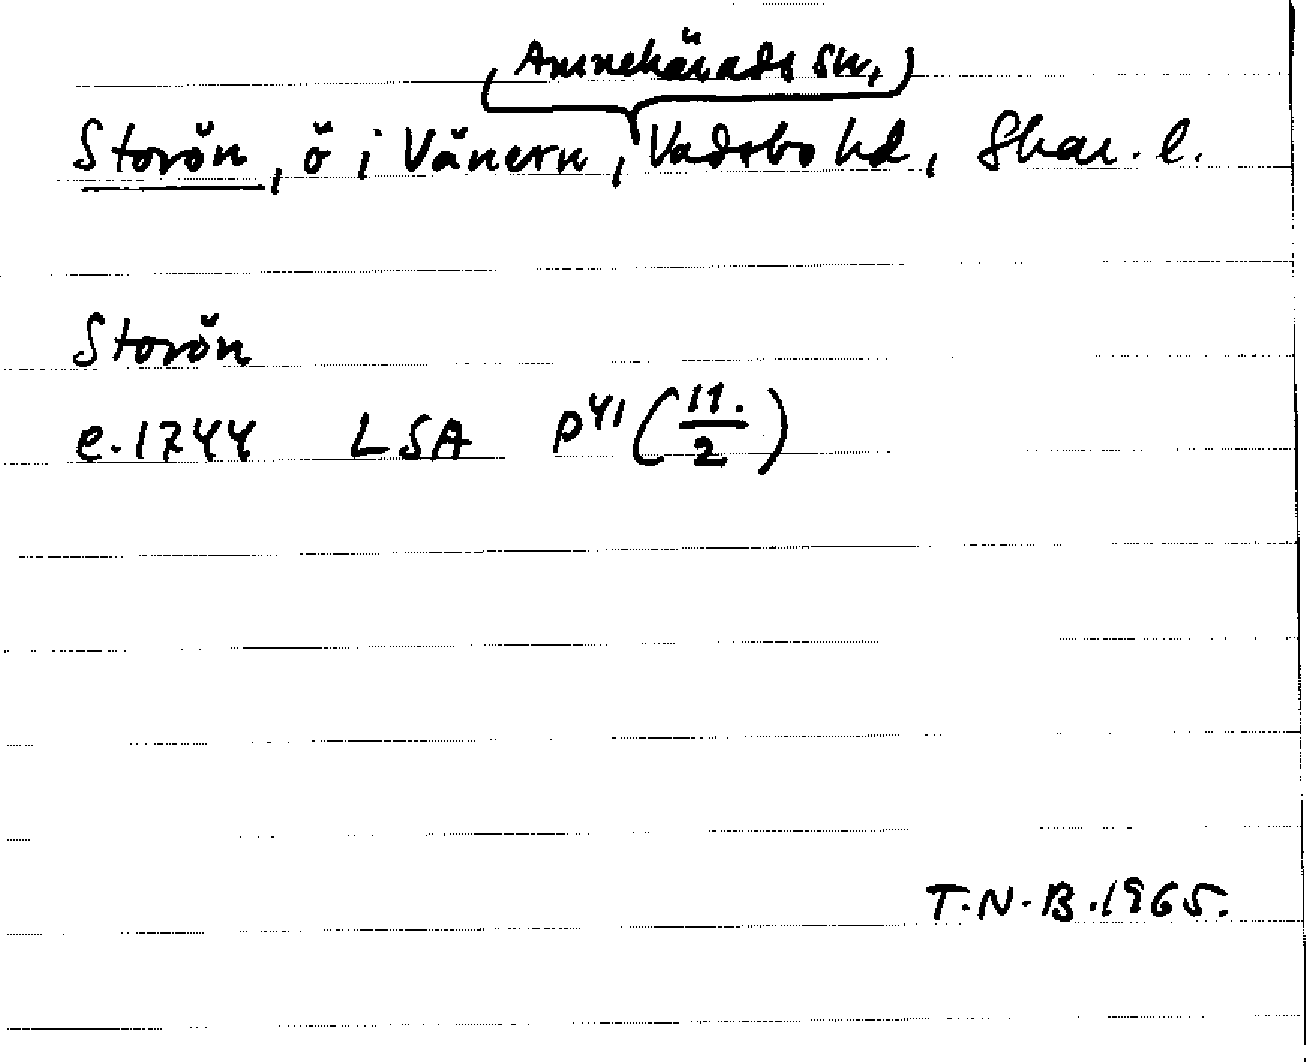 (Amnehärads sn,)
Storön, ö i Vänern, Vadsbo hd, Skar. l.
Storön
e. 1744 LSA P41 (11./2)
T.N.B. 1965.